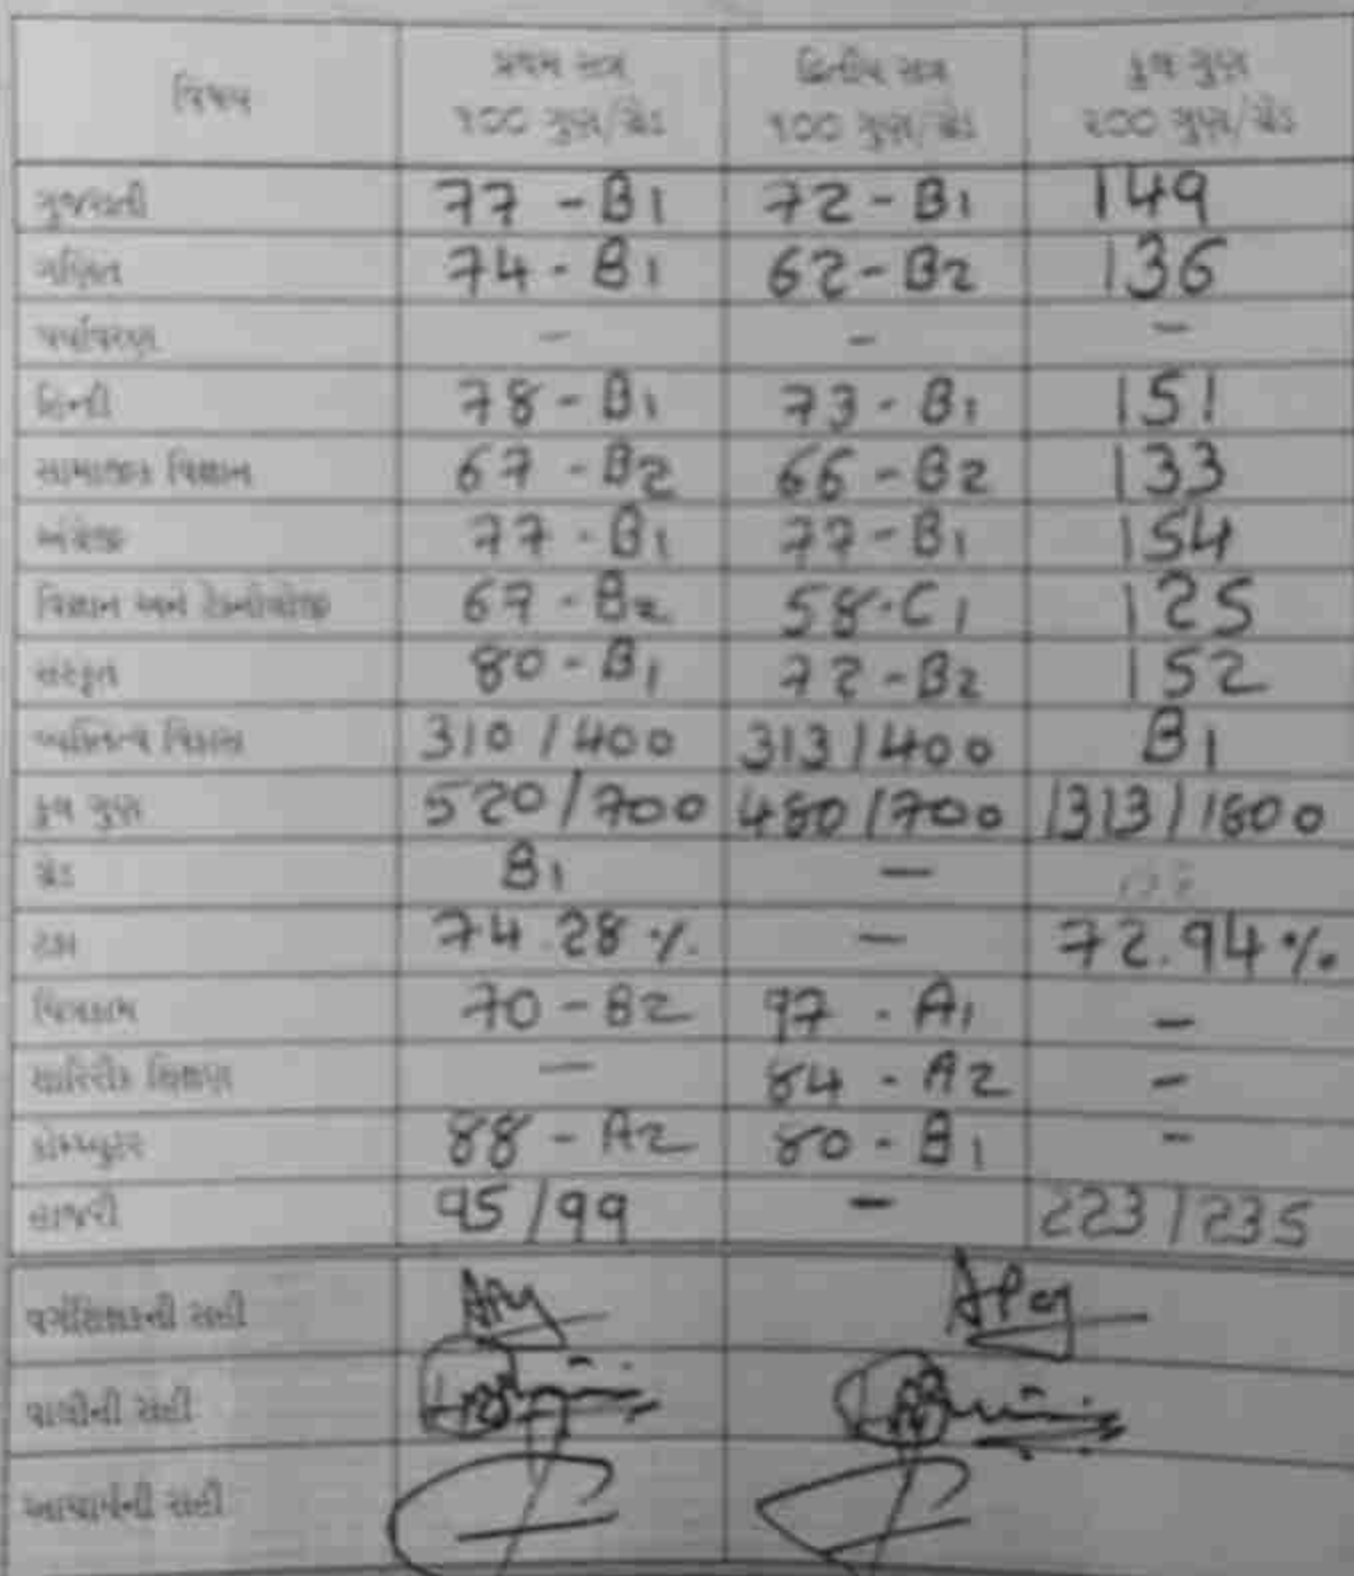 વિષય પ્રથમ સત્ર ૧૦૦ ગુણ/ગ્રેડ દ્વિતીય સત્ર ૧૦૦ ગુણ/ગ્રેડ કુલ ગુણ ૨૦૦ ગુણ/ગ્રેડ
ગુજરાતી 77 - B1 72 - B1 149
ગણિત 74 - B1 62 - B2 136
પર્યાવરણ - - -
હિન્દી 78 - B1 73 - B1 151
સામાજીક વિજ્ઞાન 67 - B2 66 - B2 133
અંગ્રેજી 77 - B1 77 - B1 154
વિજ્ઞાન અને ટેકનોલોજી 67 - B2 58 - C1 125
સંસ્કૃત 80 - B1 72 - B2 152
વ્યક્તિત્વ વિકાસ 310 / 400 313 / 400 B1
કુલ ગુણ 520 / 700 480 / 700 1313 / 1800
ગ્રેડ B1 -
ટકા 74.28 % - 72.94 %
ચિત્રકામ 70 - B2 97 - A1 -
શારિરીક શિક્ષણ - 84 - A2 -
કોમ્પ્યુટર 88 - A2 80 - B1 -
હાજરી 95 / 99 - 223 / 235
વર્ગશિક્ષકની સહી
વાલીની સહી
આચાર્યની સહી